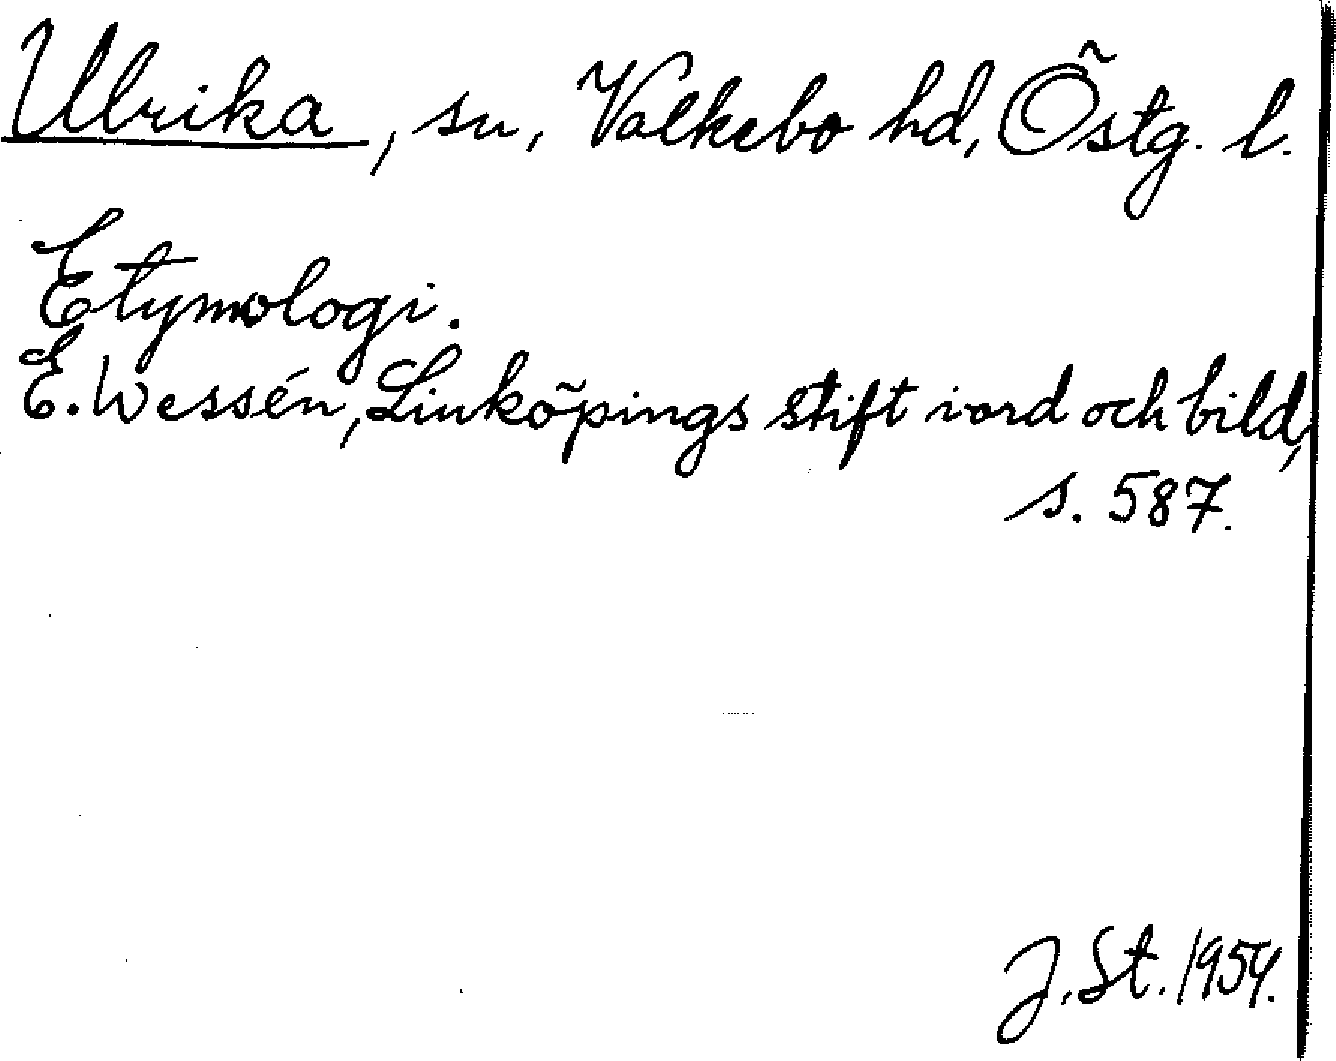 Ulrika, sn, Valkebo hd, Östg. l.
Etymologi.
E. Wessén, Linköpings stift i ord och bild,
s. 587.
J. St. 1954.